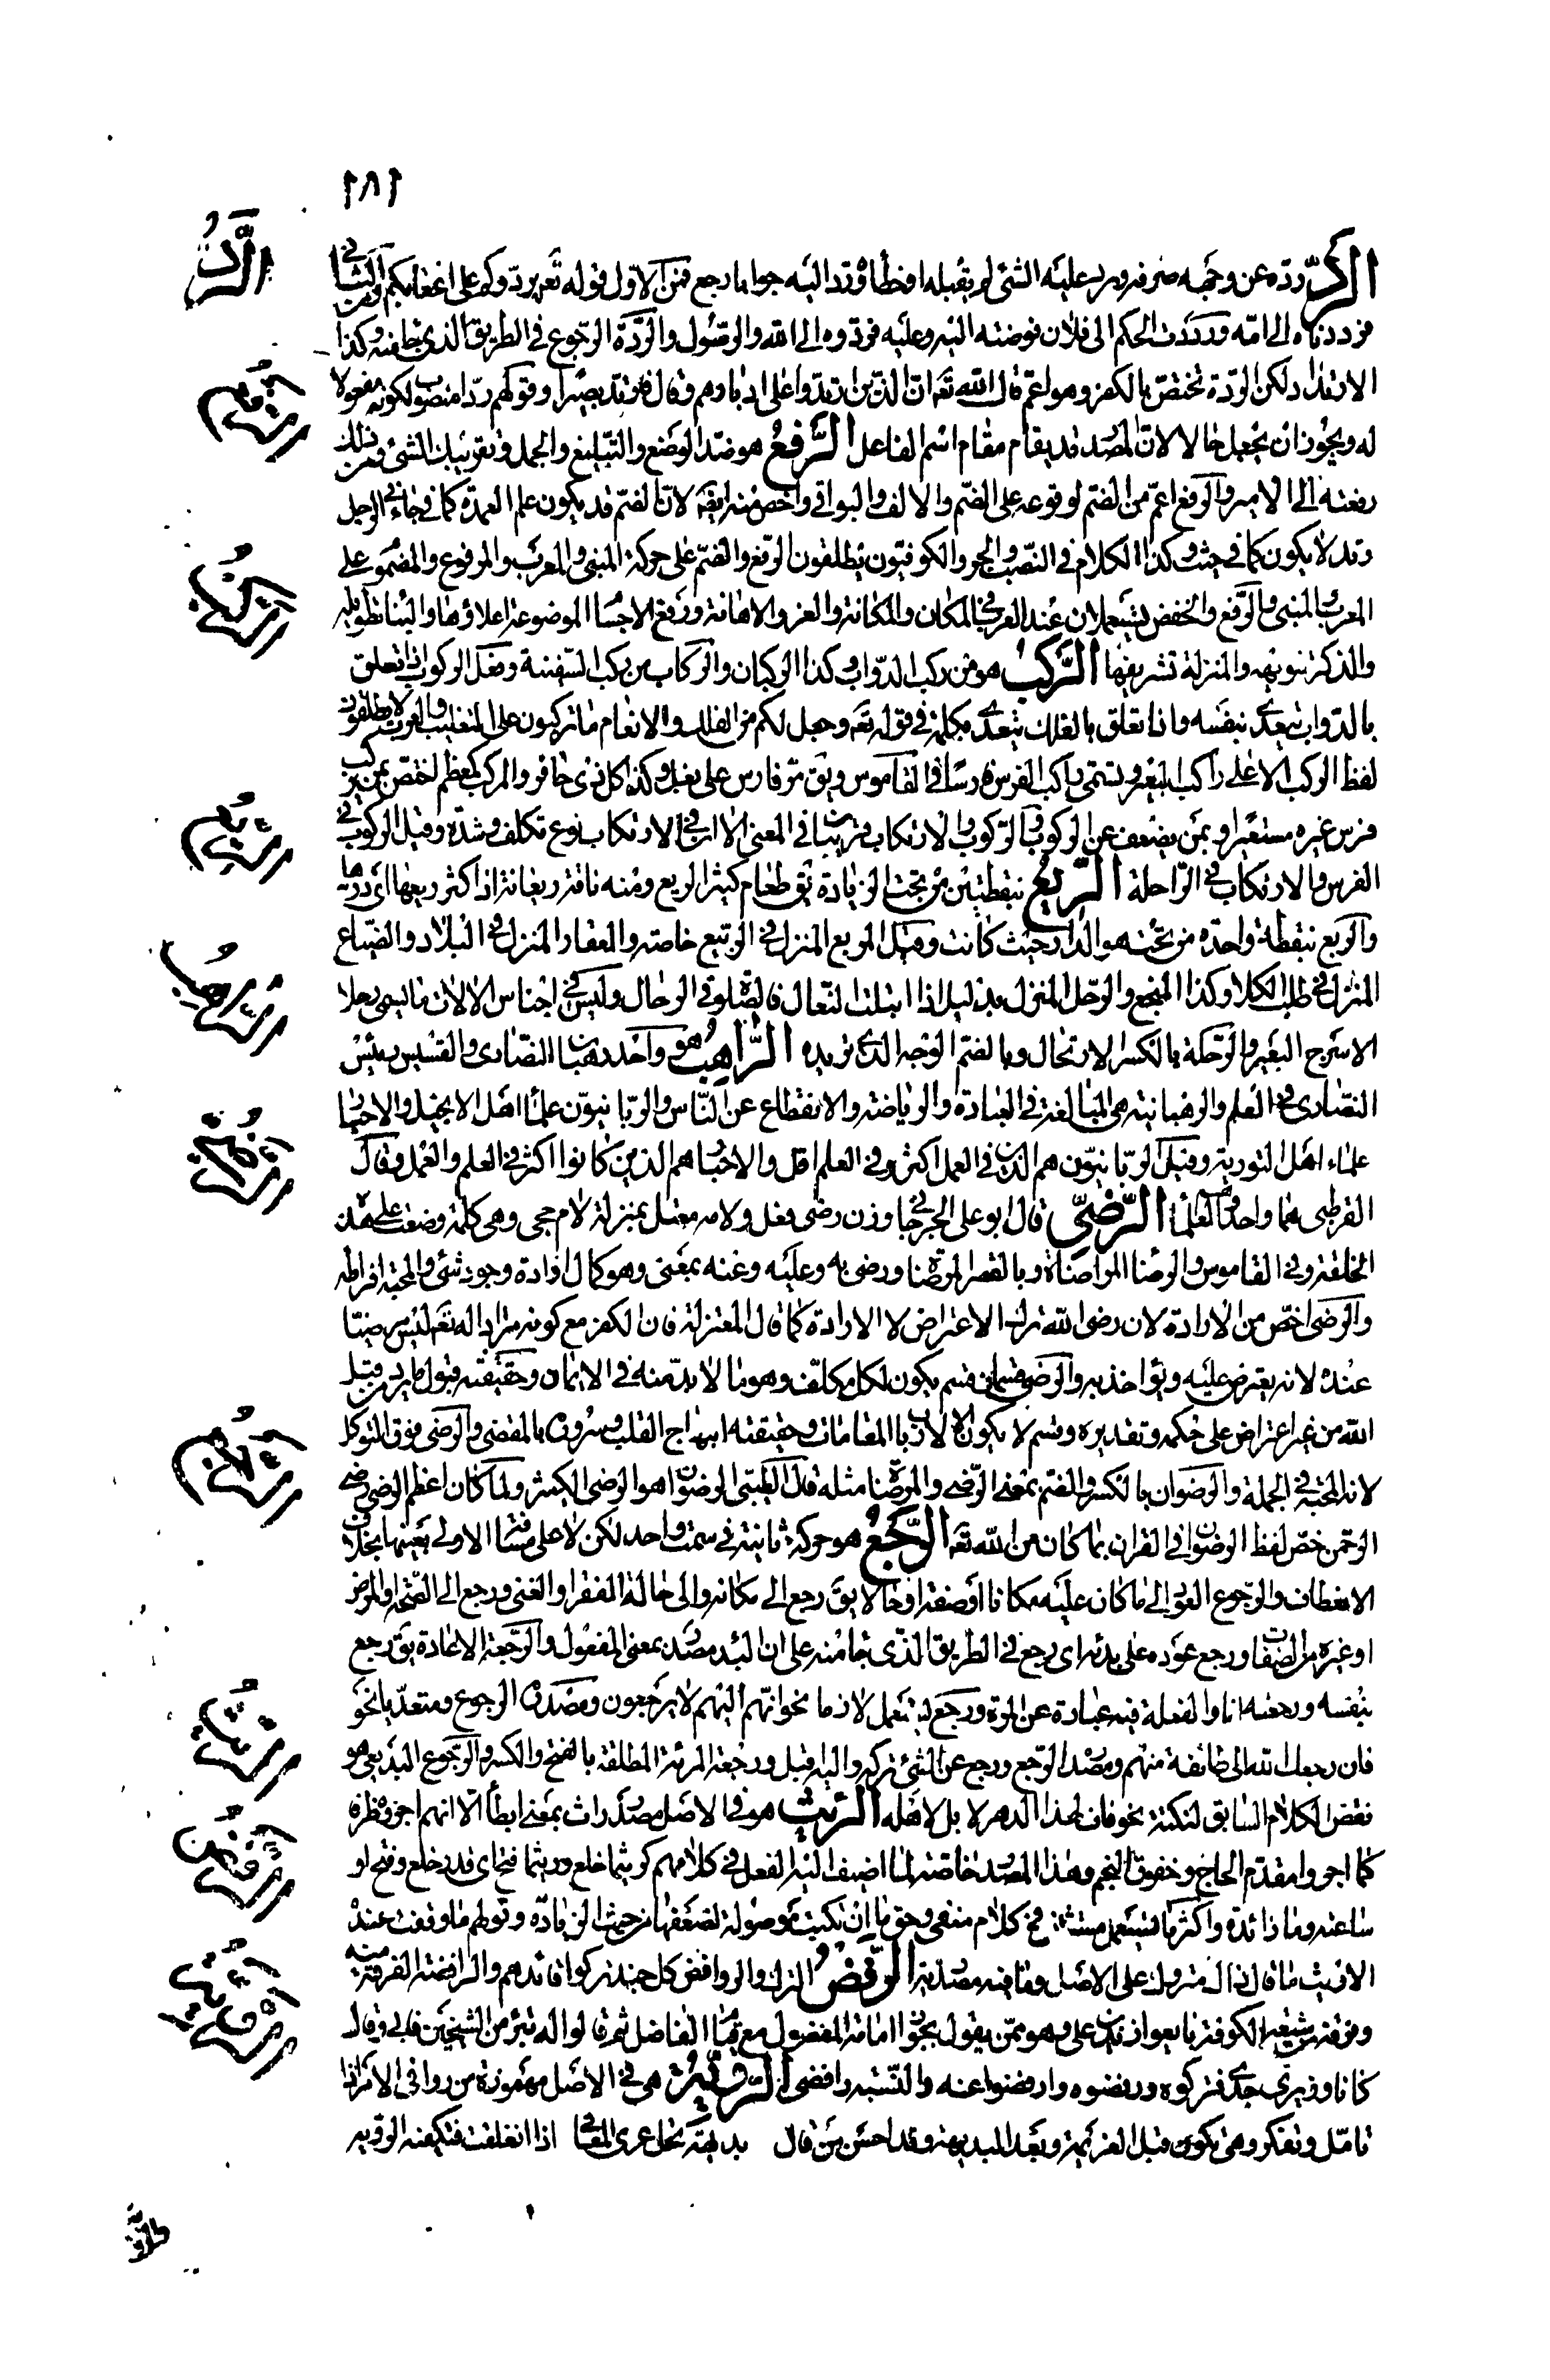 ١٨١
الردّ
الردّ ردّه عن وجهه صرفه ورد عليه الشئ لم يقبله او خطأه وردّ اليه جوابا رجع فمن الاول قوله تعه يردّوكم على اعقابكم ومن الثاني
فرددناه الى امّه ورددت الحكم الى فلان فوضته اليه وعليه فردّوه الى الله والرسول والردّة الرجوع في الطريق الذى جاء منه وكذا
الارتداد لكن الردّة تختصّ بالكفر وهو اعمّ قال الله تعه ان الذين ارتدّوا على ادبارهم وقال فارتد بصيرا وقولهم ردّا منصوب لكونه مفعولا
الرفع
له ويجوز ان يجعل حالا لان المصدر قد يقام مقام اسم الفاعل الرفع هو ضدّ الوضع والتبليغ والحمل وتقريبك الشئ ومن ذلك
رفعته الى الامير والرفع اعمّ من الضم لوقوعه على الضم والالف والواو واخص منه ايضا لان الضم قد يكون علم العمدة كما في جاء الرجل
وقد لا يكون كما في حيث وكذا الكلام في النصب والجر والكوفيون يطلقون الرفع والضم على حركة المبنى والمعرب والمرفوع والمضموم على
الركب
المعرب والمبنى والرفع والخفض يستعملان عند العرب في المكان والمكانة والعز والاهانة ورفع الاجسام الموضوعة اعلاؤها والبناء تطويله
والذكر تنويهه والمنزلة تشريفها الركب هو من ركب الدواب وكذا الركبان والركاب من ركب السفينة وفعل الركوب اذا تعلق
بالدواب يتعدى بنفسه واذا تعلق بالفلك يتعدى بكلمة في قوله تعه وجعل لكم من الفلك والانعام ما تركبون على التغليب والعرب لا يطلقون
لفظ الركب الا على راكب البعير ويسمى راكب الفرس فارسا في القاموس ويق مرّ فارس على بغل وكذا كل ذى حافر والمركب كمعظم اختص بمن يركب
الريع
فرس غيره مستعيرا وبمن يضعف عن الركوب والركوب والارتكاب قريبان في المعنى الا ان في الارتكاب نوع تكلف وشدة وقيل الركوب في
الفرس والارتكاب في الراحلة الريع بنقطتين من تحت الزيادة يق طعام كثير الريع ومنه ناقة ريعانة اذا كثر ريعها اى درّها
والربع بنقطة واحدة من تحت هو الدار حيث كانت وقيل الربع المنزل في الربيع خاصة والعقار المنزل في البلاد والضياع
المنزل في طلب الكلاء وكذا المنتجع والرحل المنزل بدليل اذا ابتلت النعال فالصلوة في الرحال وليس في اجناس الالات ما يسمى رحلا
الراهب
الا سرج البعير والرحلة بالكسر الارتحال وبالضم الوجه الذى تريده الراهب هو واحد رهبان النصارى والقسيس رئيس
النصارى في العلم والرهبانية هى المبالغة في العبادة والرياضة والانقطاع عن الناس والربانيون علماء اهل الانجيل والاحبار
علماء اهل التورية وقيل الربانيون هم الذين في العمل اكثر وفي العلم اقل والاحبار هم الذين كانوا اكثر في العلم والعمل وقال
الرضى
القرطبى هما واحد وهم العلماء الرضى قال ابو على الجرجاني وزن رضى فعل ولامه معتل بمنزلة لام حجى وهى كلمة وضعت على هذه
الخلقة وفي القاموس والرضاء المراضاة وبالقصر المرضاة ورضى به وعليه وعنه بمعنى وهو كمال ارادة وجود شئ والمحبة افراطه
والرضى اخصّ من الارادة لان رضى الله ترك الاعتراض لا الارادة كما قال المعتزلة فان الكفر مع كونه مرادا له تعه ليس مرضيا
عنده لانه يعترض عليه ويؤاخذ به والرضى قسمان قسم يكون لكل مكلف وهو ما لا بدّ منه في الايمان وحقيقته قبول ما يرد من قبل
الله من غير اعتراض على حكمه وتقديره وقسم لا يكون الا لارباب المقامات وحقيقته ابتهاج القلب وسروره بالمقضى والرضى فوق التوكل
لانه المحبة في الجملة والرضوان بالكسر والضم بمعنى الرضى والمرضاة مثله قال الطيبى الرضوان هو الرضى الكثير ولما كان اعظم الرضى رضى
الرجع
الرحمن خصّ لفظ الرضوان في القران بما كان من الله تعه الرجع هو حركة ثانية في سمت واحد لكن لا على مسافة الاولى بعينها بخلاف
الانعطاف والرجوع العود الى ما كان عليه مكانا او صفة او حالا يق رجع الى مكانه والى حالة الفقر او الغنى ورجع الى الصحة او المرض
او غيره من الصفات ورجع عوده على بدئه اى رجع في الطريق الذى جاء منه على ان البدء مصدر بمعنى المفعول والرجعة الاعادة يق رجع
بنفسه ورجعته انا والفعلة فيه عبارة عن المرة ورجع يستعمل لازما نحو انهم اليهم لا يرجعون ومصدره الرجوع ومتعديا نحو
الريث
فان رجعك الله الى طائفة منهم ومصدره الرجع ورجع عن الشئ تركه واليه اقبل ورجعة المرئة المطلقة بالفتح والكسر والرجوع البديعى هو
نقض الكلام السابق لنكتة نحو فاف لهذا الدهر لا بل لاهله الريث هو في الاصل مصدر راث بمعنى ابطأ الا انهم اجروه ظرفا
الرفض
كما اجروا مقدم الحاج وخفوق النجم وهذا المصدر خاصة لما اضيف اليه الفعل في كلامهم كريثما خلع وريثما فتح اى قدر خلع وفتح او
ساعته وما زائدة واكثر ما يستعمل مستثنى في كلام منفى وحق ما ان تكتب موصولة لضعفها من حيث الزيادة وقولهم ما وقفت عنده
الا ريث ما قال ذاك متروك على الاصل وما فيه مصدرية الرفض الترك والروافض كل جند تركوا قائدهم والرافضة الفرقة منه
الروية
وفرقة من شيعة الكوفة بايعوا زيد بن على وهو ممن يقول بجواز امامة المفضول مع قيام الفاضل ثم قالوا له تبرّء من الشيخين فابى وقال
كانا وزيرى جدى فتركوه ورفضوه وارفضوا عنه والنسبة رافضى الروية هى في الاصل مهموزة من روأ في الامر اذا
تامّل وتفكر وهى تكون قبل العزيمة وبعد البديهة وقد احسن من قال بديهته تحل عرى المعاني اذا انغلقت فتكفيه الروية